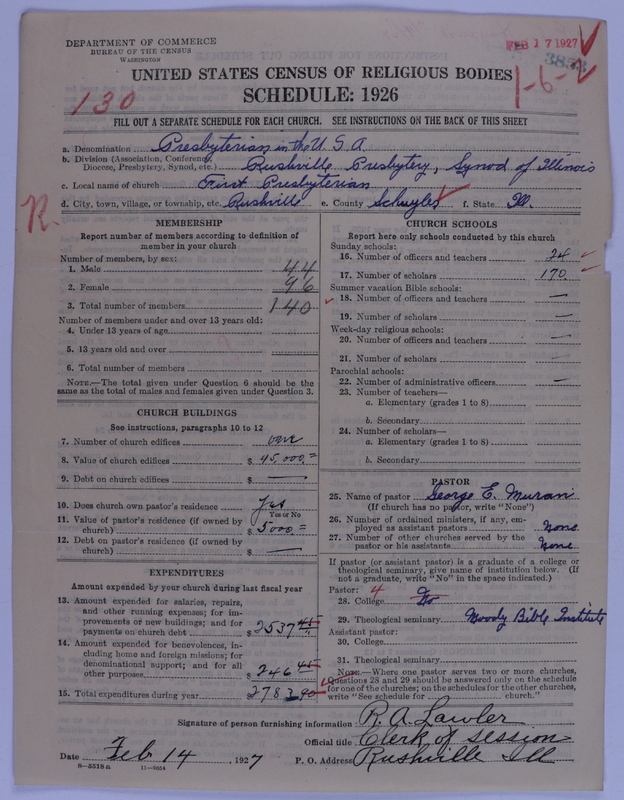 DEPARTMENT OF COMMERCE
BUREAU OF THE CENSUS
WASHINGTON
FEB 17 1927
3853
1-6-2
UNITED STATES CENSUS OF RELIGIOUS BODIES
SCHEDULE: 1926
130
FILL OUT A SEPARATE SCHEDULE FOR EACH CHURCH. SEE INSTRUCTIONS ON THE BACK OF THIS SHEET
a. Denomination Presbyterian in the U.S.A
b. Division (Association, Conference, Diocese, Presbytery, Synod, etc.) Rushville Presbytery, Synod of Illinois
c. Local name of church First Presbyterian
d. City, town, village, or township, etc. Rushville e. County Schuyler f. State Ill.
R.
MEMBERSHIP
Report number of members according to definition of
member in your church
Number of members, by sex:
1. Male 44
2. Female 96
3. Total number of members 140
Number of members under and over 13 years old:
4. Under 13 years of age
5. 13 years old and over
6. Total number of members
NOTE.—The total given under Question 6 should be the
same as the total of males and females given under Question 3.
CHURCH BUILDINGS
See instructions, paragraphs 10 to 12
7. Number of church edifices one
8. Value of church edifices $ 45,000.=
9. Debt on church edifices $ —
10. Does church own pastor's residence Yes
Yes or No
11. Value of pastor's residence (if owned by
church) $ 5000.=
12. Debt on pastor's residence (if owned by
church) $ —
EXPENDITURES
Amount expended by your church during last fiscal year
13. Amount expended for salaries, repairs,
and other running expenses; for im-
provements or new buildings; and for
payments on church debt $ 2537 45
14. Amount expended for benevolences, in-
cluding home and foreign missions; for
denominational support; and for all
other purposes $ 246 45
15. Total expenditures during year $ 2783 90
CHURCH SCHOOLS
Report here only schools conducted by this church
Sunday schools:
16. Number of officers and teachers 24
17. Number of scholars 170
Summer vacation Bible schools:
18. Number of officers and teachers —
19. Number of scholars —
Week-day religious schools:
20. Number of officers and teachers —
21. Number of scholars —
Parochial schools:
22. Number of administrative officers —
23. Number of teachers—
a. Elementary (grades 1 to 8)
b. Secondary
24. Number of scholars—
a. Elementary (grades 1 to 8)
b. Secondary
PASTOR
25. Name of pastor George E. Muran
(If church has no pastor, write "None")
26. Number of ordained ministers, if any, em-
ployed as assistant pastors None
27. Number of other churches served by the
pastor or his assistants None
If pastor (or assistant pastor) is a graduate of a college or
theological seminary, give name of institution below. (If
not a graduate, write "No" in the space indicated.)
Pastor: 4
28. College No
29. Theological seminary Moody Bible Institute
Assistant pastor:
30. College
31. Theological seminary
NOTE.—Where one pastor serves two or more churches,
Questions 28 and 29 should be answered only on the schedule
for one of the churches; on the schedules for the other churches,
write "See schedule for church."
Signature of person furnishing information: R. A. Lawler
Official title Clerk of Session
Date Feb 14, 1927 P. O. Address Rushville Ill
8—5518a 11—9054